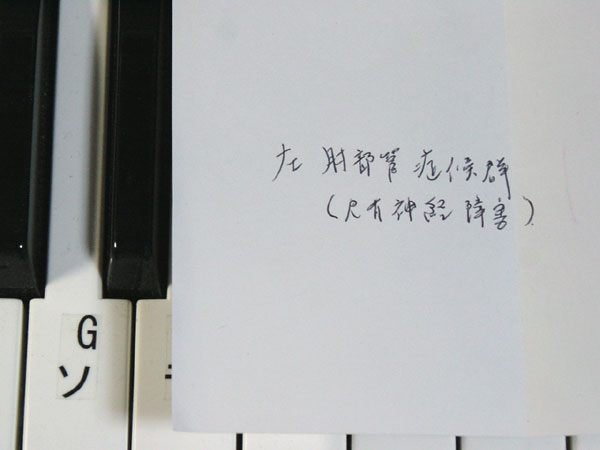 左 肘部管症候群
(尺骨神経障害)
G
ソ